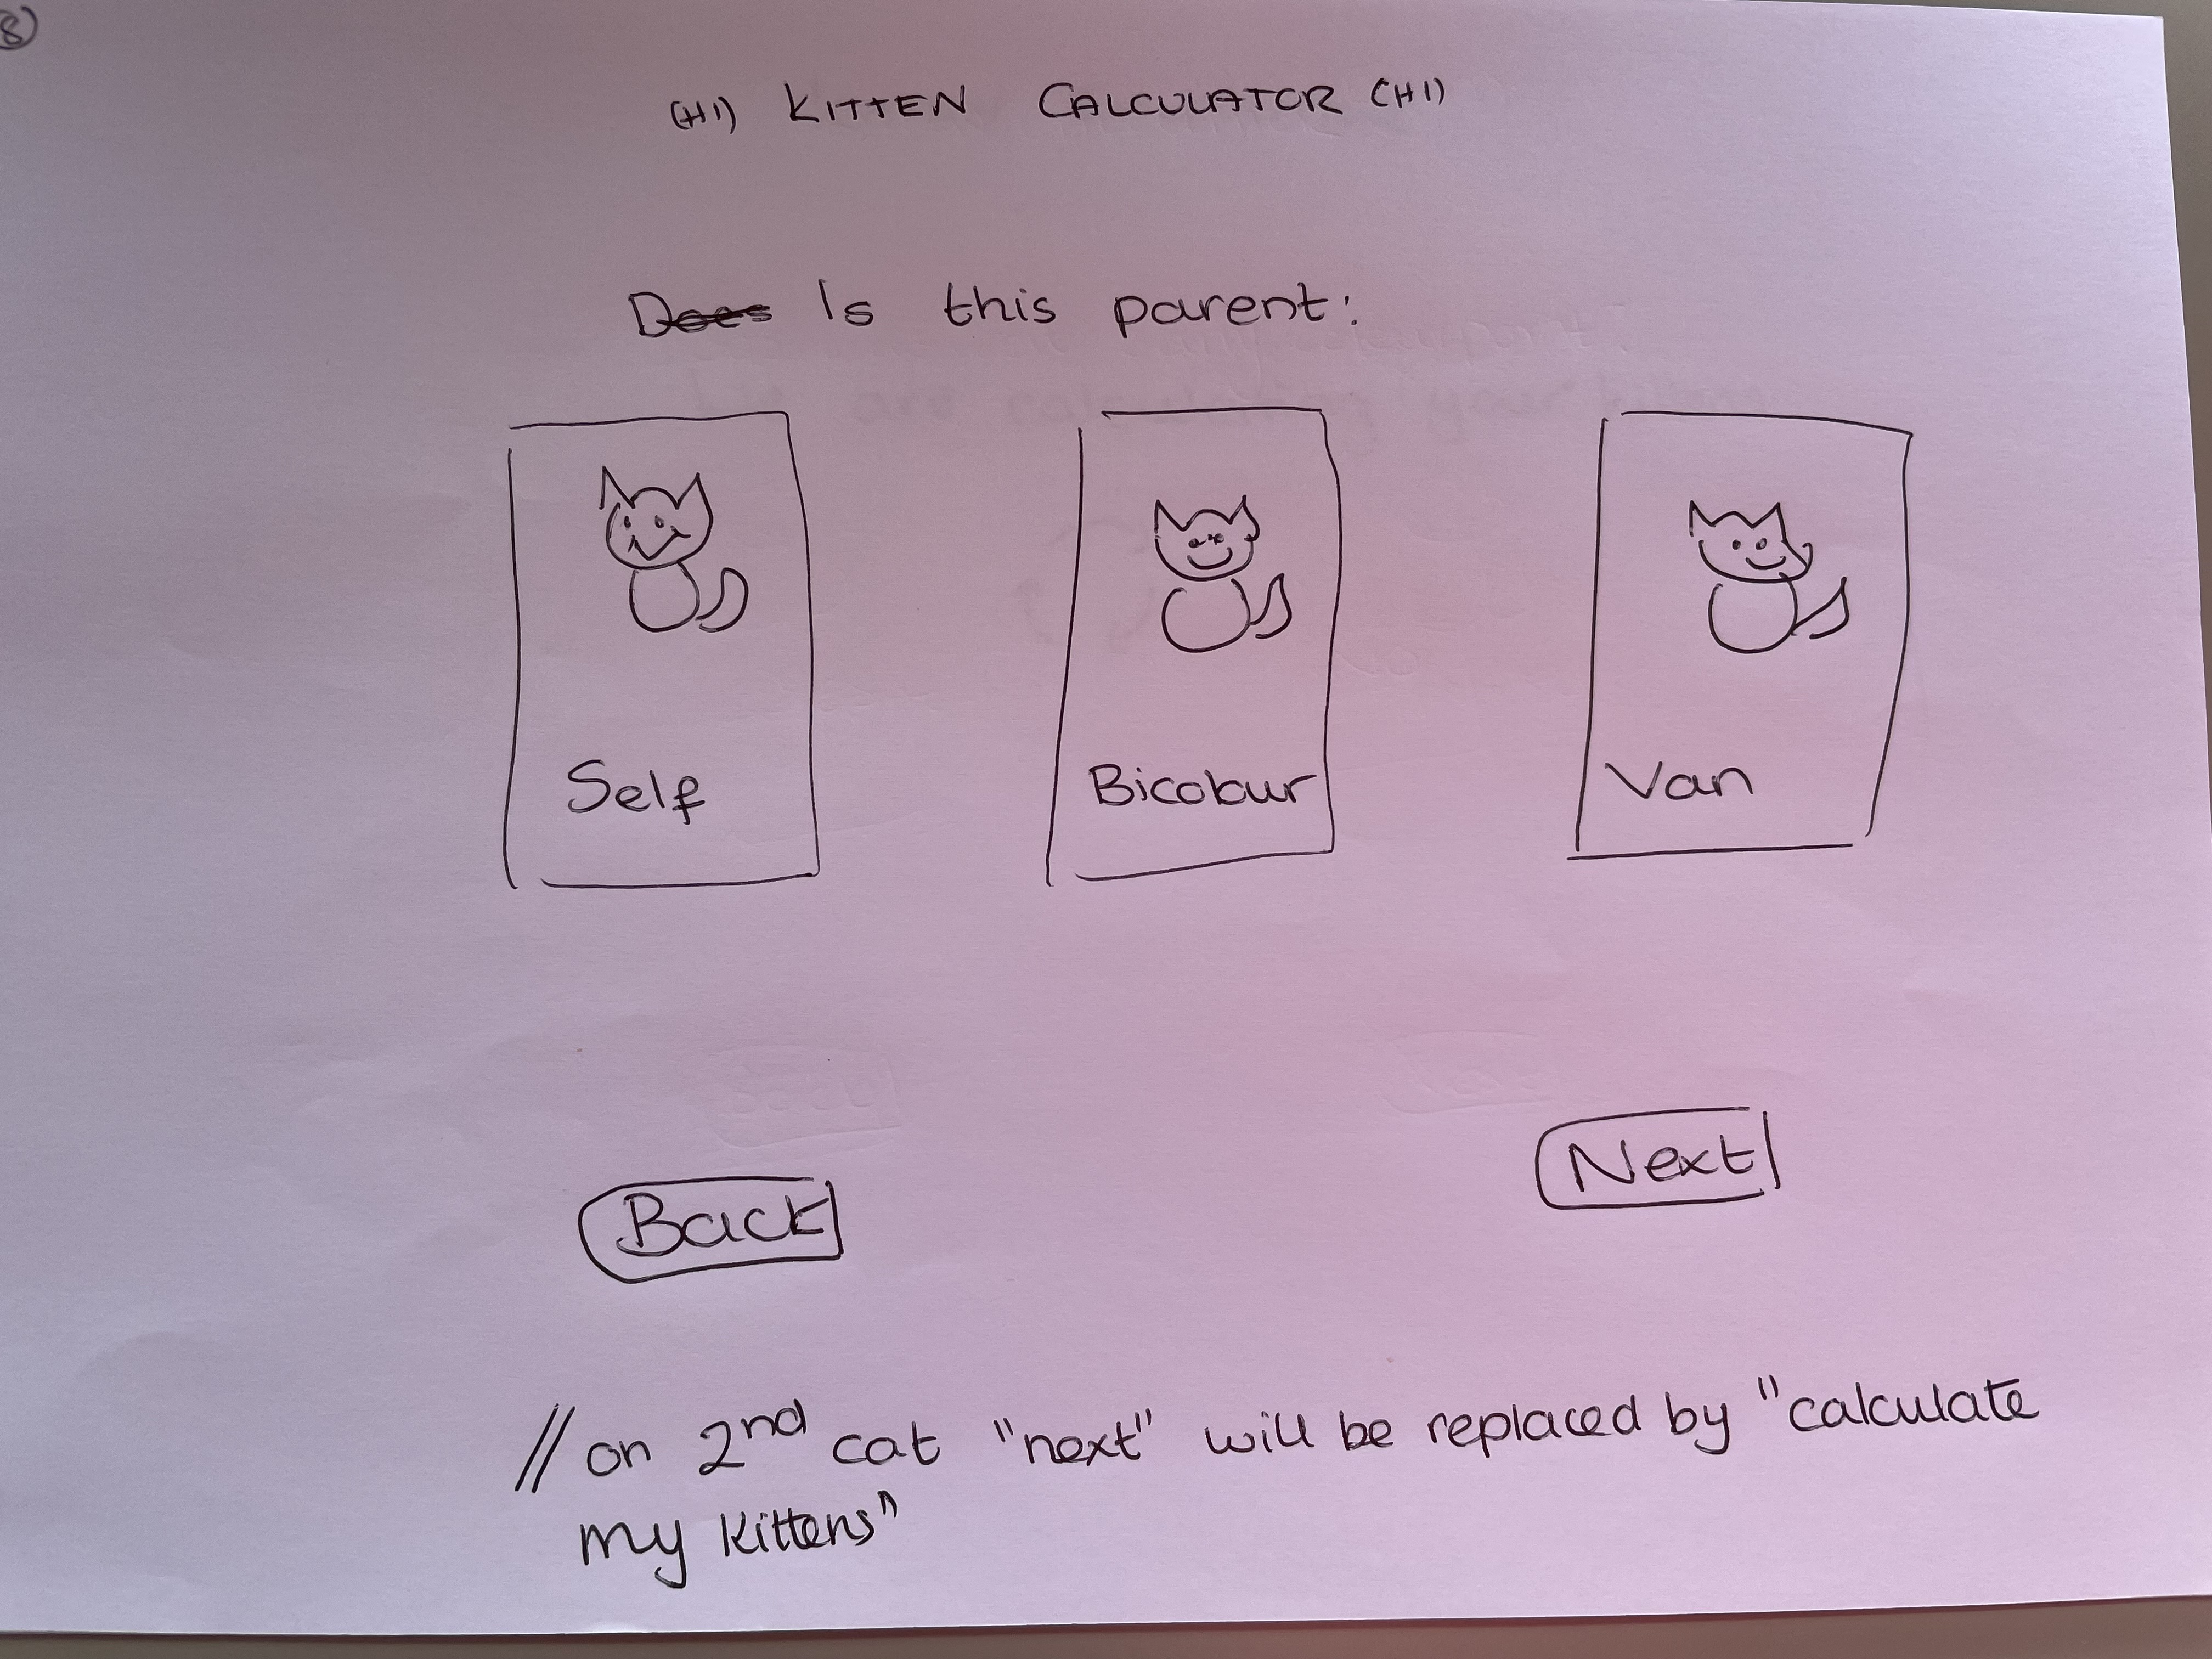 8
(H1) KITTEN CALCULATOR (H1)
Does Is this parent:
Self
Bicolour
Van
Next
Back
// on 2nd cat "next" will be replaced by "calculate
my kittens"